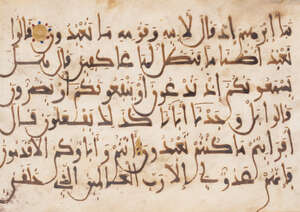 نبا ابرهيم اذ قال لابيه وقومه ما تعبدون قالوا
نعبد اصناما فنظل لها عكفين قال هل
يسمعونكم اذ تدعون او ينفعونكم او يضرون
قالوا بل وجدنا اباءنا كذلك يفعلون قال
افرايتم ما كنتم تعبدون انتم واباوكم الاقدمون
فانهم عدو لي الا رب العلمين الذي خلقني